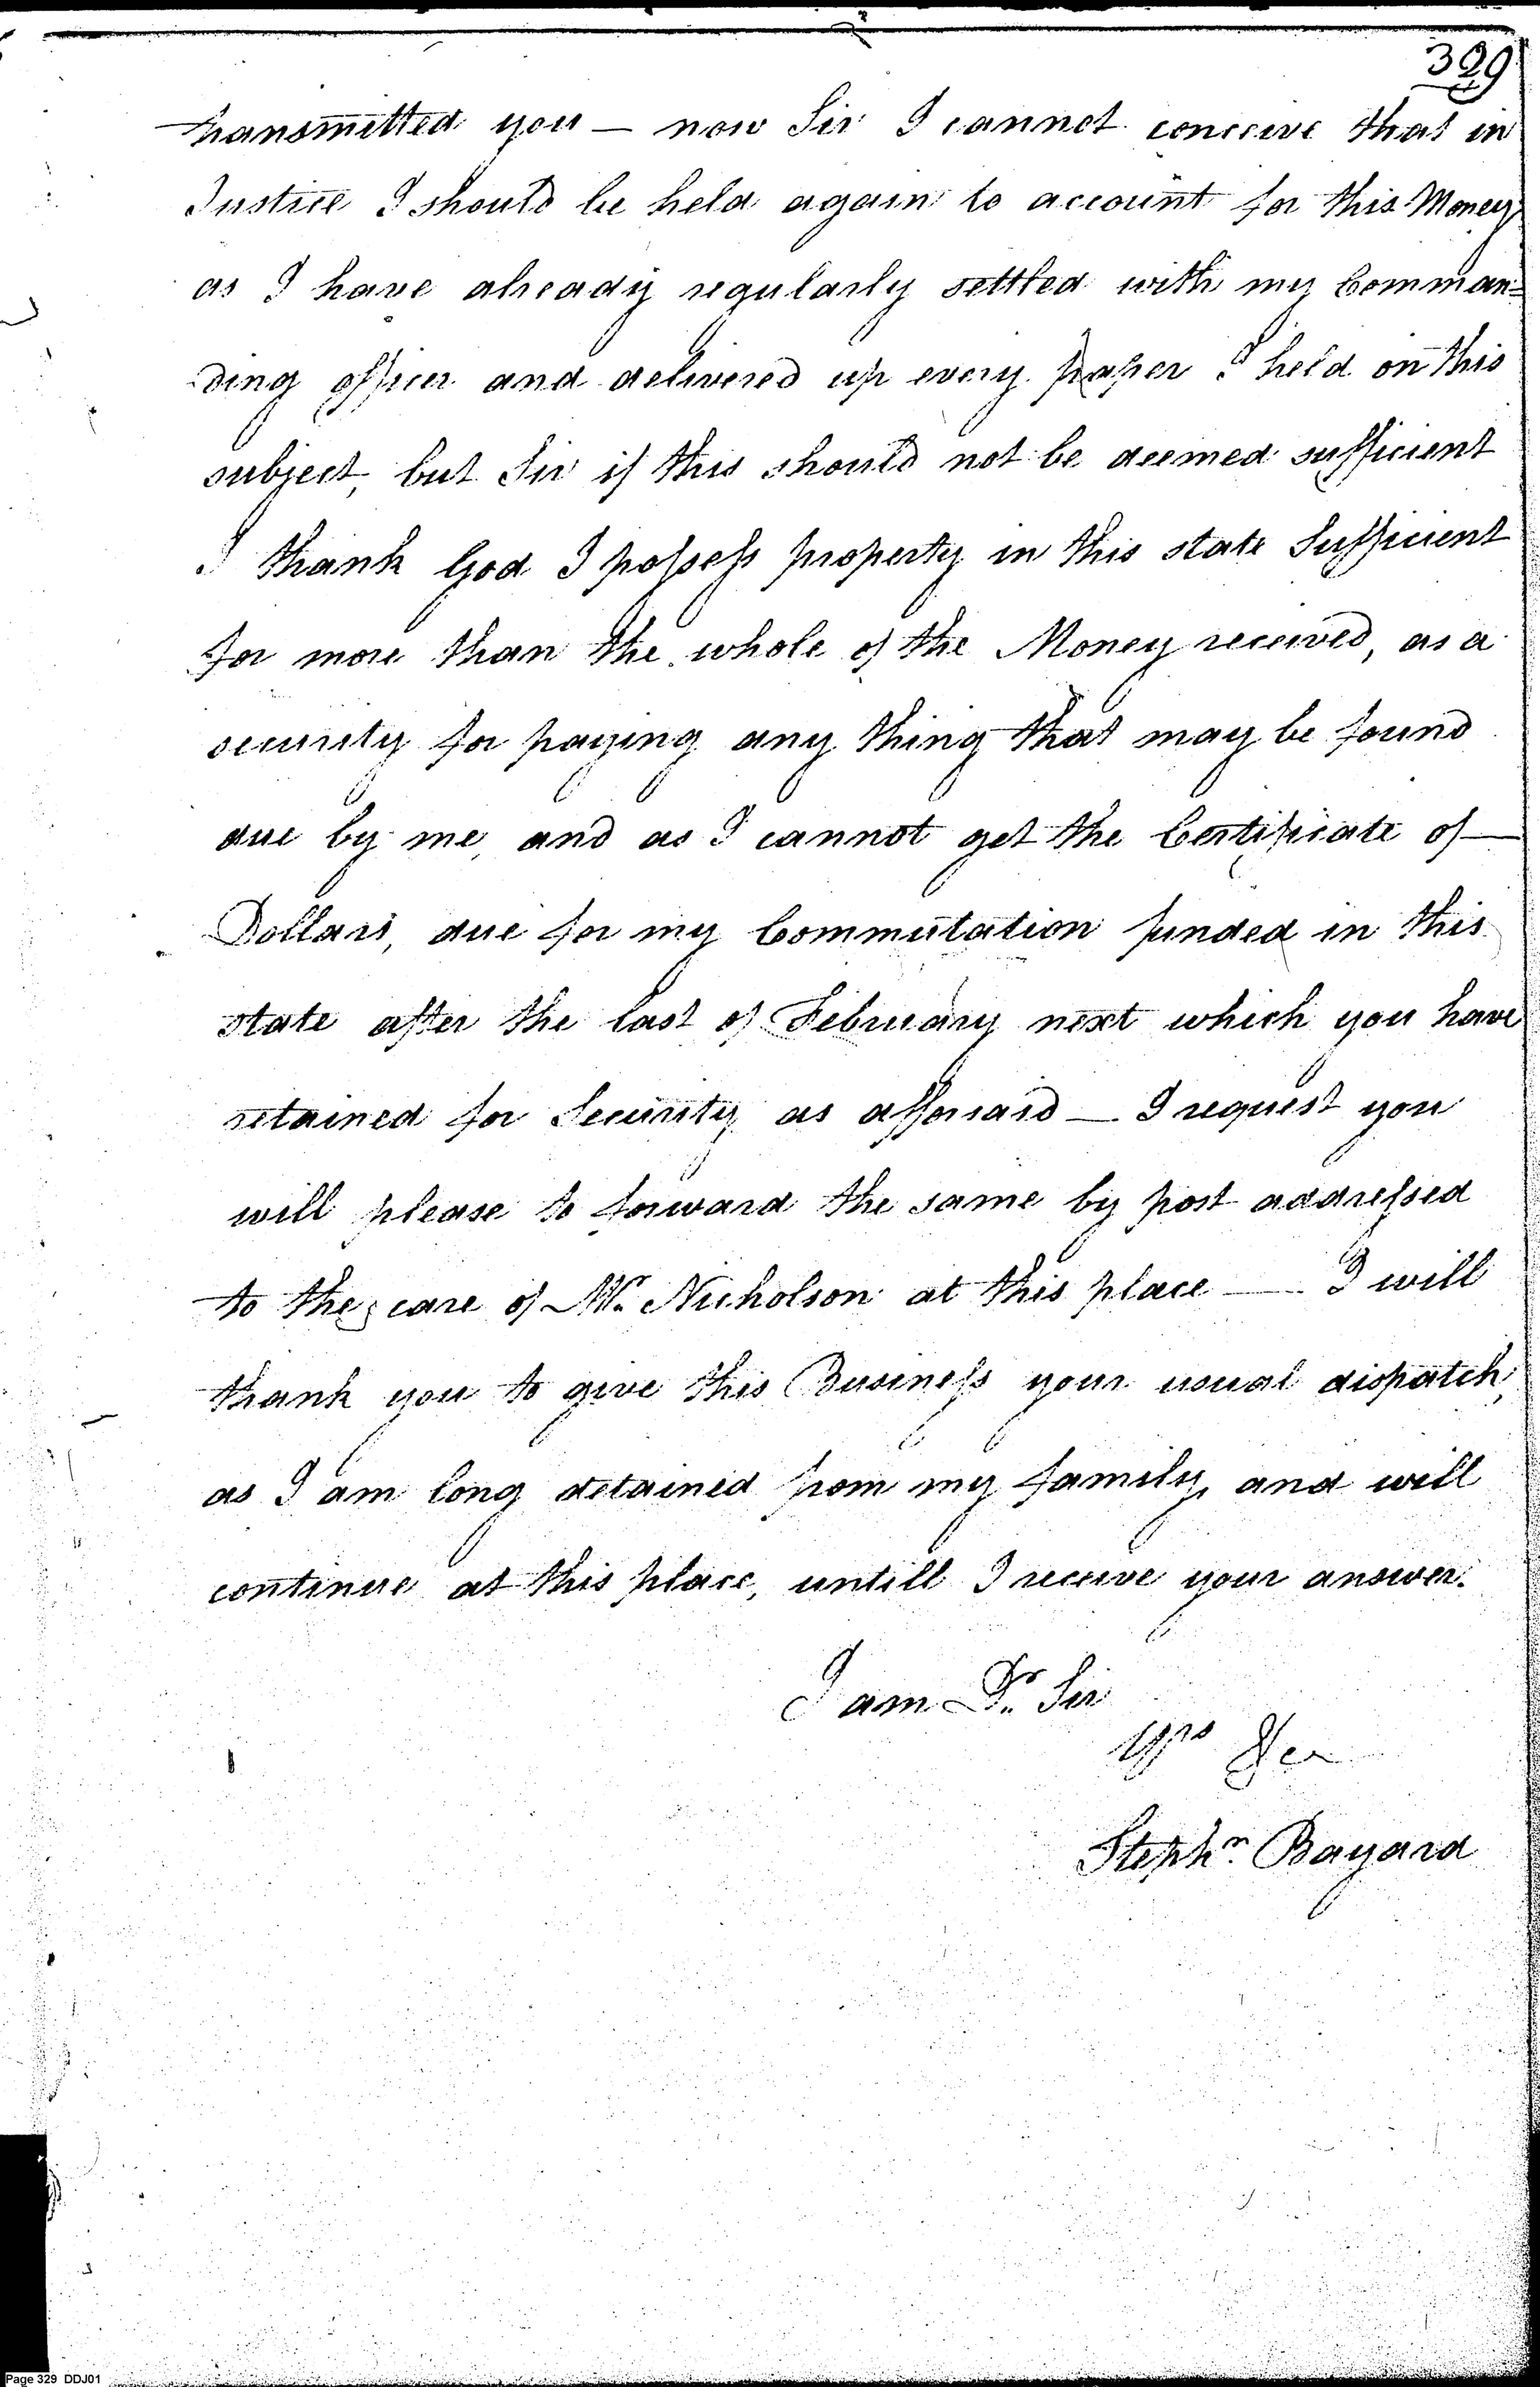 329
transmitted you — now Sir I cannot conceive that in
Justice I should be held again to account for this Money
as I have already regularly settled with my Comman=
ding officer and delivered up every paper I held on this
subject, but Sir if this should not be deemed sufficient
I thank God I possess property in this state Sufficient
for more than the whole of the Money received, as a
security for paying any thing that may be found
due by me, and as I cannot get the Certificate of —
Dollars, due for my Commutation funded in this
state after the last of February next which you have
retained for Security as afforsaid — I request you
will please to forward the same by post addressed
to the care of Mr. Nicholson at this place — I will
thank you to give this Business your usual dispatch,
as I am long detained from my family, and will
continue at this place, untill I receive your answer.
I am Dr. Sir
Yrs &ca
Stephn. Bayard
Page 329 DDJ01